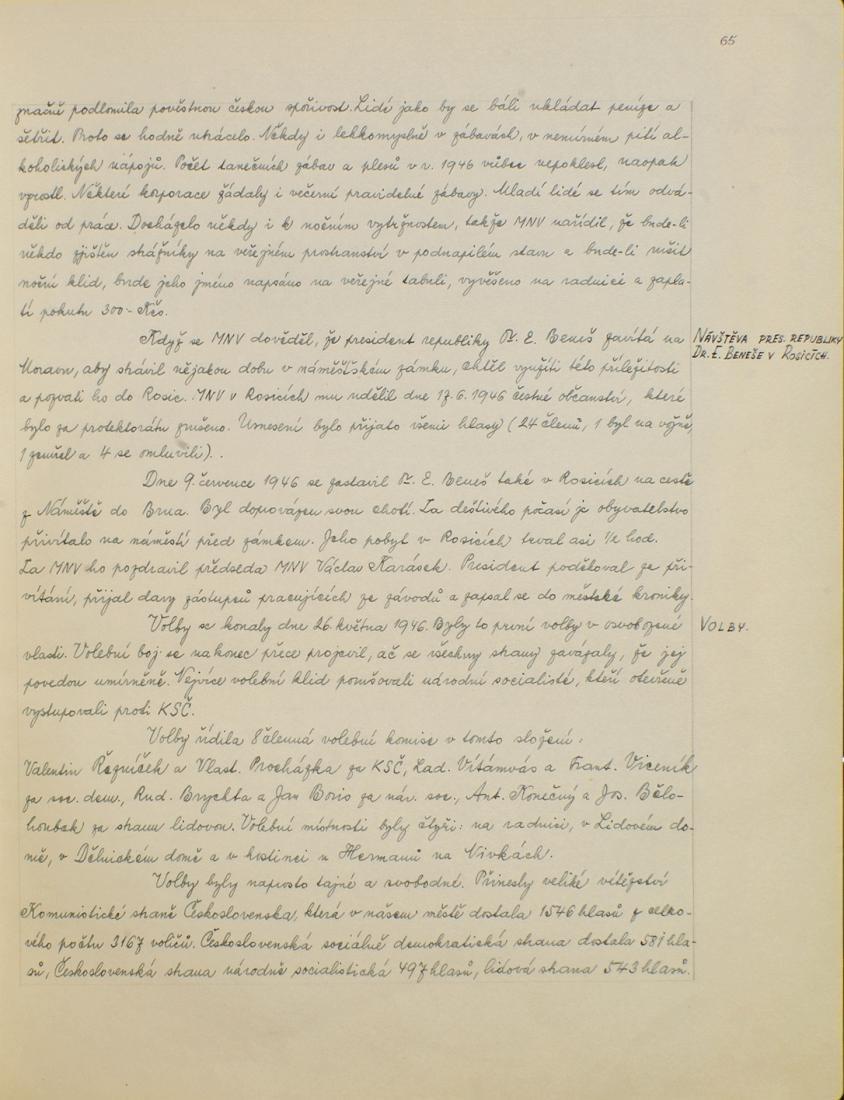 65
značně podlomila pověstnou českou spořivost. Lidé jako by se báli ukládat peníze a
šetřit. Proto se hodně utrácelo. Někdy i lehkomyslně v zábavách, v nemírném pití al-
koholických nápojů. Počet tanečních zábav a plesů v r. 1946 vůbec nepoklesl, naopak
vzrostl. Některé korporace žádaly i večerní pravidelné zábavy. Mladí lidé se tím odvá-
děli od práce. Docházelo někdy i k nočním výtržnostem, takže MNV nařídil, že bude-li
někdo zjištěn strážníky na veřejném prostranství v podnapilém stavu a bude-li rušit
noční klid, bude jeho jméno napsáno na veřejné tabuli, vyvěšeno na radnici a zapla-
tí pokutu 300.- Kčs.
Když se MNV dověděl, že president republiky Dr. E. Beneš zavítá na
Moravu, aby strávil nějakou dobu v náměšťském zámku, chtěl využíti této příležitosti
a pozvati ho do Rosic. MNV v Rosicích mu udělil dne 17.6.1946 čestné občanství, které
bylo za protektorátu zrušeno. Usnesení bylo přijato všemi hlasy (24 členů, 1 byl na vojně,
1 zemřel a 4 se omluvili).
NÁVŠTĚVA PRES. REPUBLIKY
DR. E. BENEŠE V ROSICÍCH.
Dne 9. července 1946 se zastavil Dr. E. Beneš také v Rosicích na cestě
z Náměště do Brna. Byl doprovázen svou chotí. Za deštivého počasí je obyvatelstvo
přivítalo na náměstí před zámkem. Jeho pobyt v Rosicích trval asi 1/2 hod.
Za MNV ho pozdravil předseda MNV Václav Karásek. President poděkoval za při-
vítání, přijal dary zástupců pracujících ze závodů a zapsal se do městské kroniky.
Volby se konaly dne 26. května 1946. Byly to první volby v osvobozené
VOLBY.
vlasti. Volební boj se nakonec přece projevil, ač se všechny strany zavázaly, že jej
povedou umírněně. Nejvíce volební klid porušovali národní socialisté, kteří otevřeně
vystupovali proti KSČ.
Volby řídila 8 členná volební komise v tomto složení:
Valentin Řezníček a Vlast. Procházka za KSČ, Lad. Vítámvás a Frant. Viceník
za soc. dem., Rud. Brychta a Jan Boris za nár. soc., Ant. Konečný a Jos. Bělo-
houbek za stranu lidovou. Volební místnosti byly čtyři: na radnici, v Lidovém do-
mě, v Dělnickém domě a v hostinci u Hermanů na Nivkách.
Volby byly naprosto tajné a svobodné. Přinesly veliké vítězství
Komunistické straně Československa, která v našem městě dostala 1546 hlasů z celko-
vého počtu 3167 voličů. Československá sociálně demokratická strana dostala 581 hla-
sů, Československá strana národně socialistická 497 hlasů, lidová strana 543 hlasů.